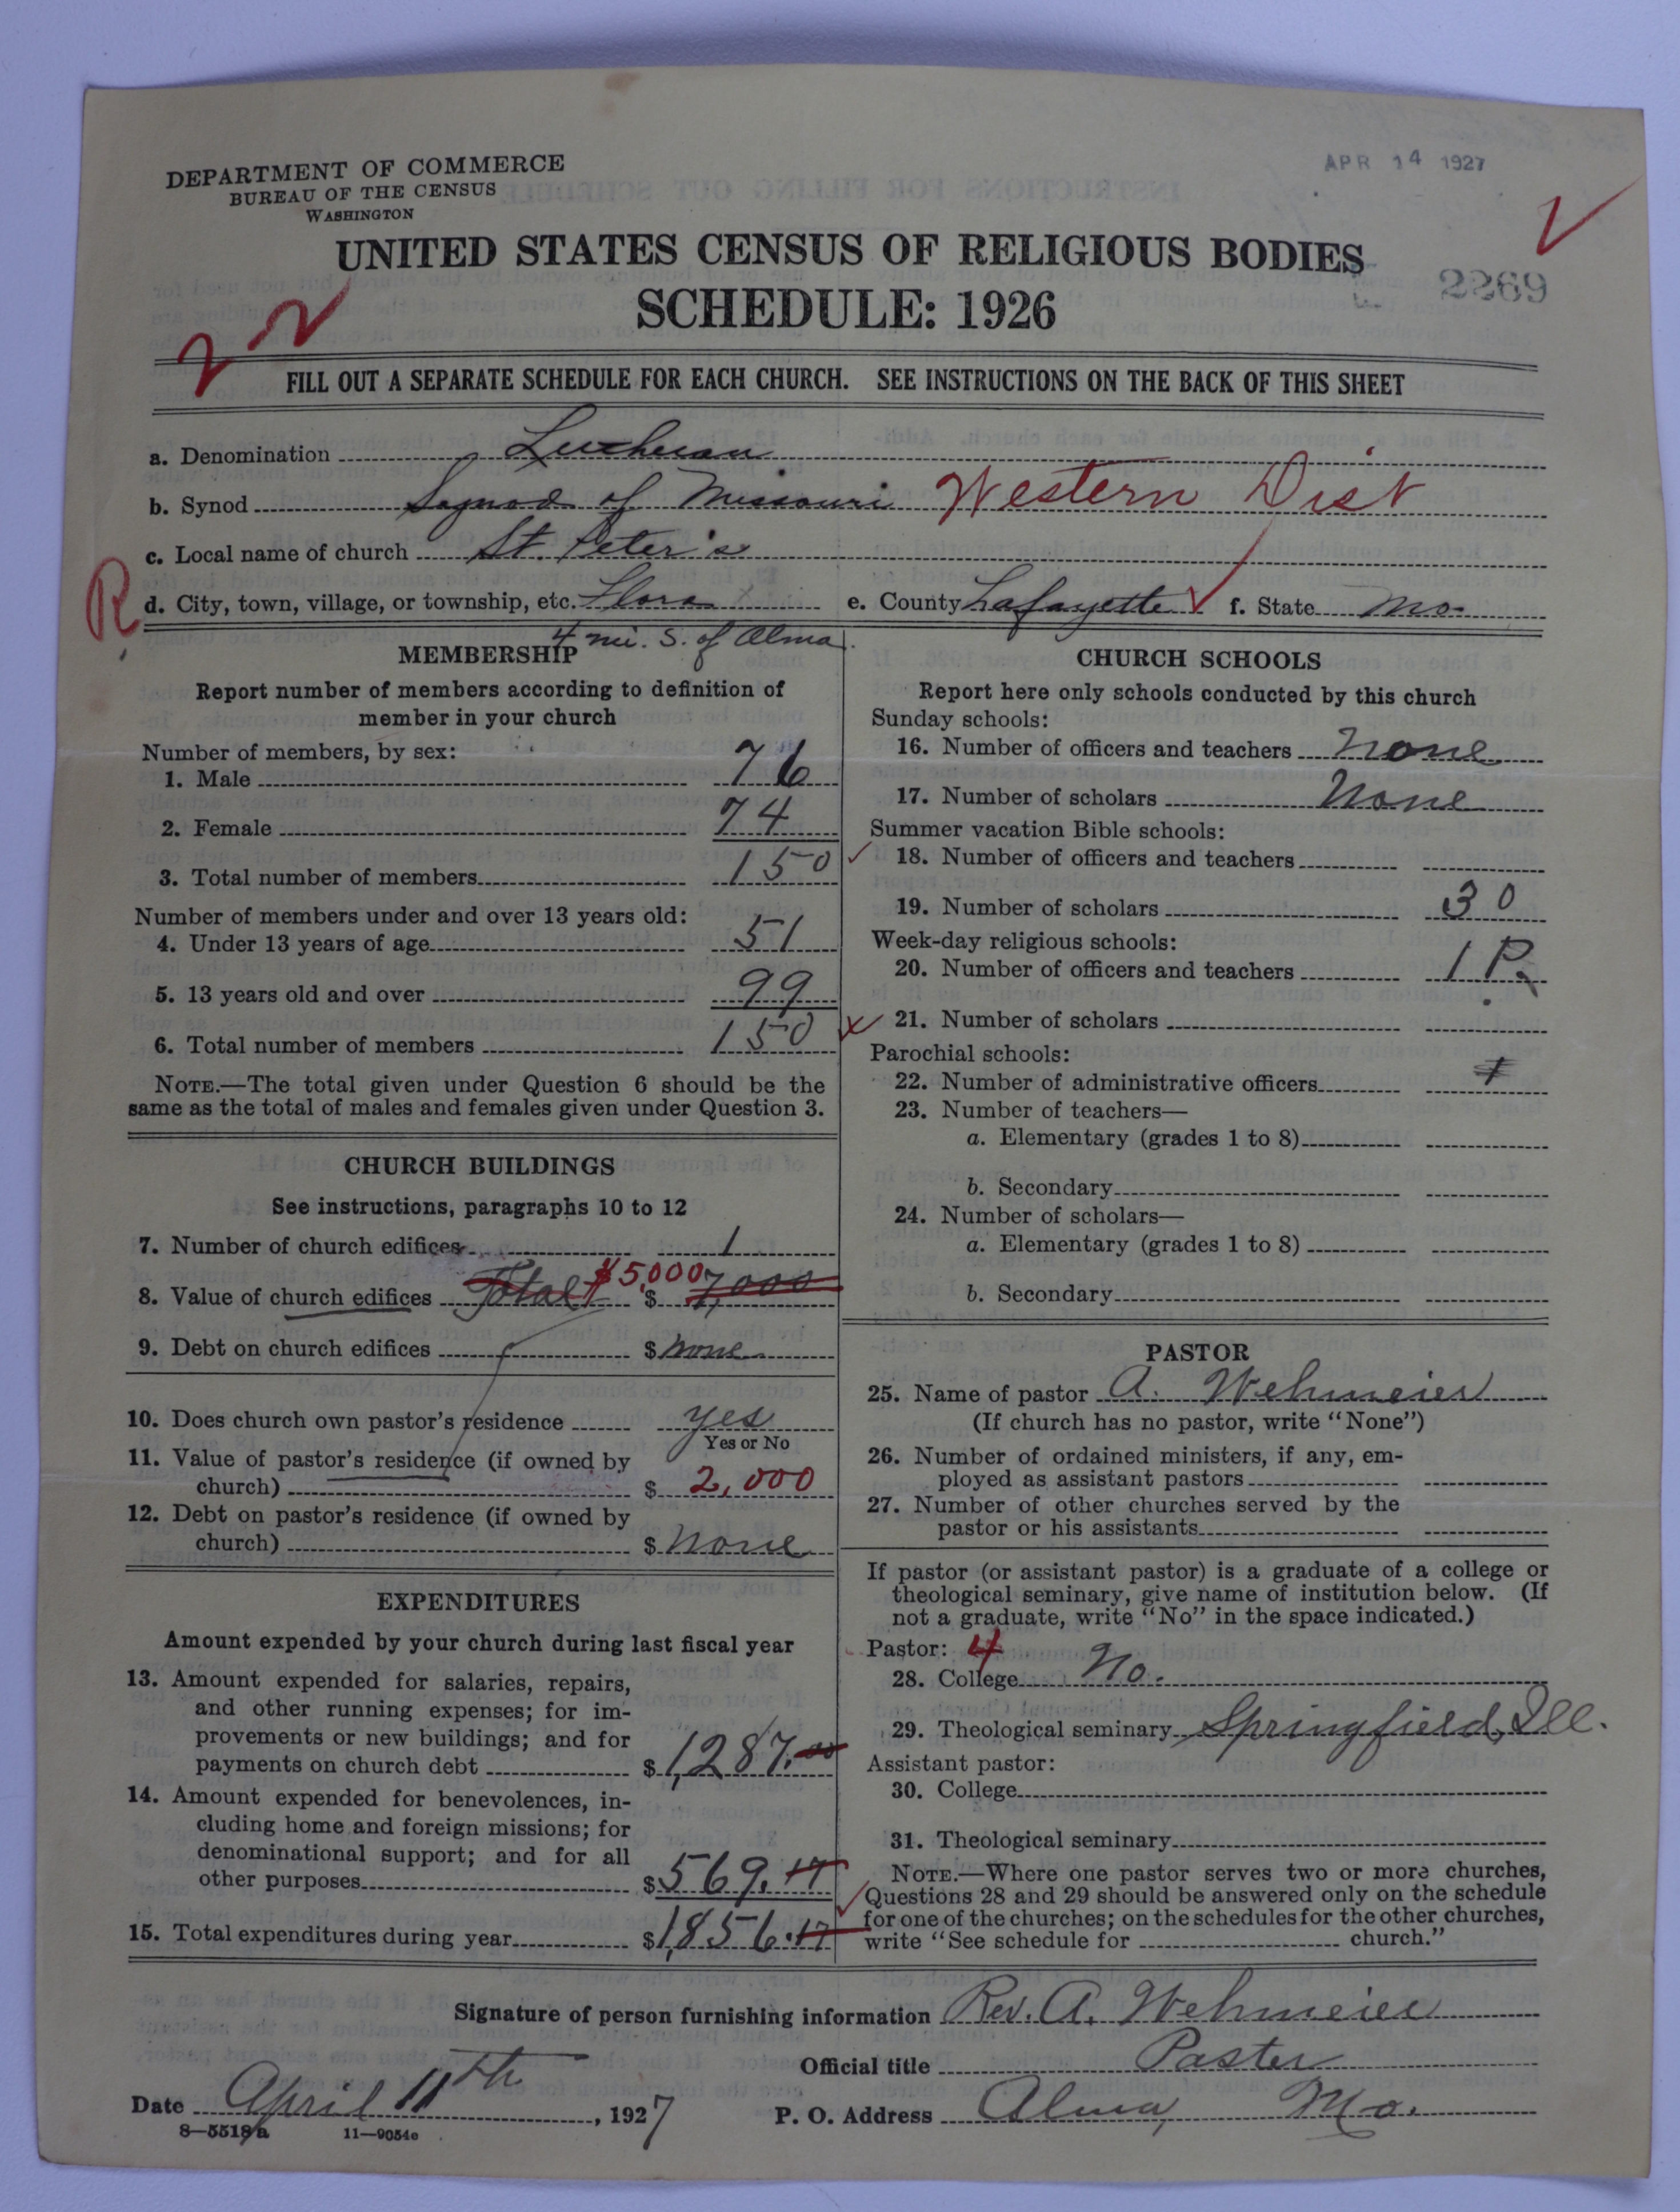 APR 14 1927
DEPARTMENT OF COMMERCE
BUREAU OF THE CENSUS
WASHINGTON
UNITED STATES CENSUS OF RELIGIOUS BODIES
SCHEDULE: 1926
2269
FILL OUT A SEPARATE SCHEDULE FOR EACH CHURCH. SEE INSTRUCTIONS ON THE BACK OF THIS SHEET
a. Denomination Lutheran
b. Synod Synod of Missouri Western Dist
c. Local name of church St. Peter's
R d. City, town, village, or township, etc. Flora e. County Lafayette f. State Mo.
4 mi. S. of Alma
MEMBERSHIP
Report number of members according to definition of
member in your church
Number of members, by sex:
1. Male 76
2. Female 74
3. Total number of members 150
Number of members under and over 13 years old:
4. Under 13 years of age 51
5. 13 years old and over 99
6. Total number of members 150
NOTE.—The total given under Question 6 should be the
same as the total of males and females given under Question 3.
CHURCH BUILDINGS
See instructions, paragraphs 10 to 12
7. Number of church edifices 1
8. Value of church edifices Total $5,000 $ 7,000
9. Debt on church edifices $ none
10. Does church own pastor's residence yes
Yes or No
11. Value of pastor's residence (if owned by
church) $ 2,000
12. Debt on pastor's residence (if owned by
church) $ None
EXPENDITURES
Amount expended by your church during last fiscal year
13. Amount expended for salaries, repairs,
and other running expenses; for im-
provements or new buildings; and for
payments on church debt $ 1,287.00
14. Amount expended for benevolences, in-
cluding home and foreign missions; for
denominational support; and for all
other purposes $ 569.17
15. Total expenditures during year $ 1,856.17
CHURCH SCHOOLS
Report here only schools conducted by this church
Sunday schools:
16. Number of officers and teachers None
17. Number of scholars None
Summer vacation Bible schools:
18. Number of officers and teachers
19. Number of scholars 30
Week-day religious schools:
20. Number of officers and teachers 1 P.
21. Number of scholars
Parochial schools:
22. Number of administrative officers
23. Number of teachers—
a. Elementary (grades 1 to 8)
b. Secondary
24. Number of scholars—
a. Elementary (grades 1 to 8)
b. Secondary
PASTOR
25. Name of pastor A. Wehmeier
(If church has no pastor, write "None")
26. Number of ordained ministers, if any, em-
ployed as assistant pastors
27. Number of other churches served by the
pastor or his assistants
If pastor (or assistant pastor) is a graduate of a college or
theological seminary, give name of institution below. (If
not a graduate, write "No" in the space indicated.)
Pastor: 4
28. College No.
29. Theological seminary Springfield, Ill.
Assistant pastor:
30. College
31. Theological seminary
NOTE.—Where one pastor serves two or more churches,
Questions 28 and 29 should be answered only on the schedule
for one of the churches; on the schedules for the other churches,
write "See schedule for church."
Signature of person furnishing information Rev. A. Wehmeier
Official title Pastor
Date April 11th, 1927 P. O. Address Alma, Mo.
8—5518a 11—9054c